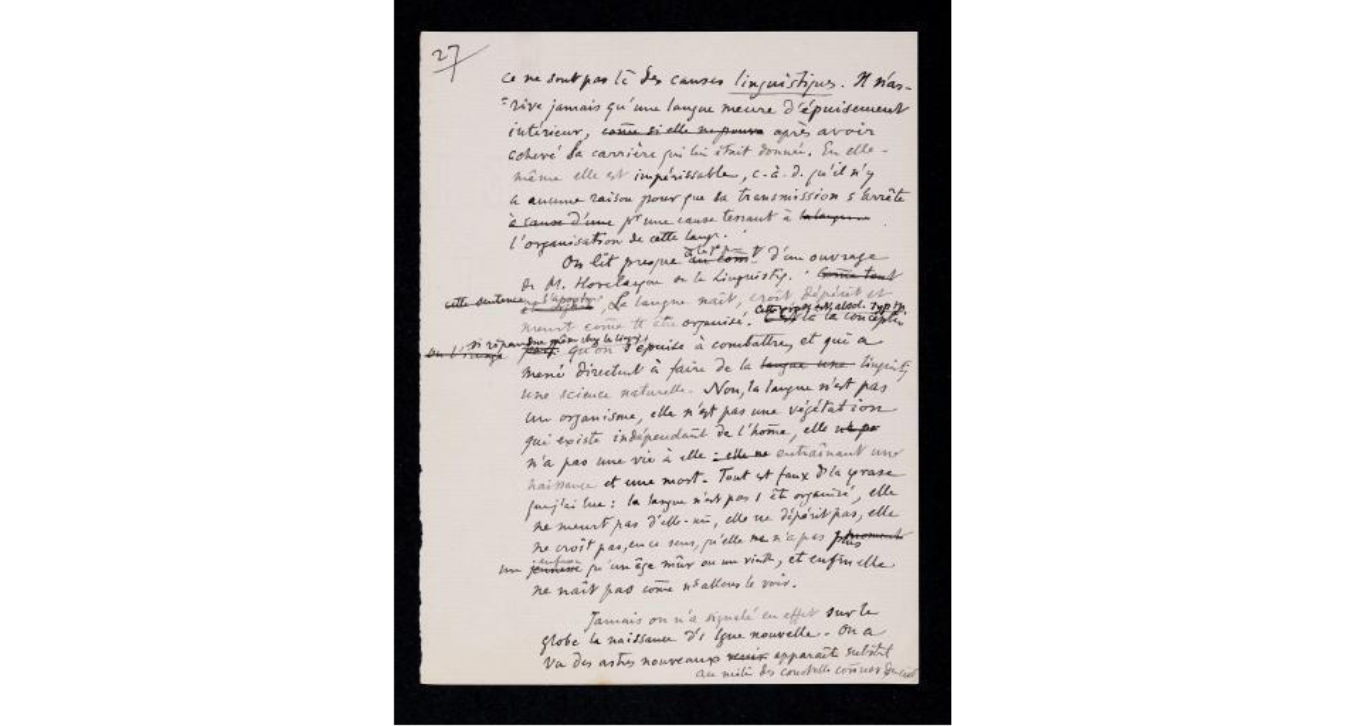 27
ce ne sont pas là des causes linguistiques. Il n'ar-
-rive jamais qu'une langue meure d'épuisement
intérieur, come si elle ne pouva après avoir
achevé sa carrière qui lui était donnée. En elle-
même elle est impérissable, c.-à.-d. qu'il n'y
a aucune raison pour que sa transmission s'arrête
à cause d'une pr une cause tenant à
l'organisation de cette lang.
On lit presque d'un ouvrage
de M. Hovelacque sur la Linguistiq. Come tout
cette sentence La langue naît, croît, dépérit et
meurt come tt être organisé. C'est là la conception
si répandue même chez les linguist
qu'on s'épuise à combattre, et qui a
mené directent à faire de la langue une linguistiq
une science naturelle. Non, la langue n'est pas
un organisme, elle n'est pas une végétation
qui existe indépendant de l'home, elle ne pe
n'a pas une vie à elle : elle ne entraînant une
naissance et une mort. Tout est faux ds la phrase
que j'ai lue : la langue n'est pas 1 êt organisé, elle
ne meurt pas d'elle-mê, elle ne dépérit pas, elle
ne croît pas, en ce sens, qu'elle ne n'a pas plus
une jeunesse enfance qu'un âge mûr ou une vieille, et enfin elle
ne naît pas come ns allons le voir.
Jamais on n'a signalé en effet sur le
globe la naissance d'1 lgue nouvelle. On a
vu des astres nouveaux apparaît subitt
au milieu des constell. connues du ciel